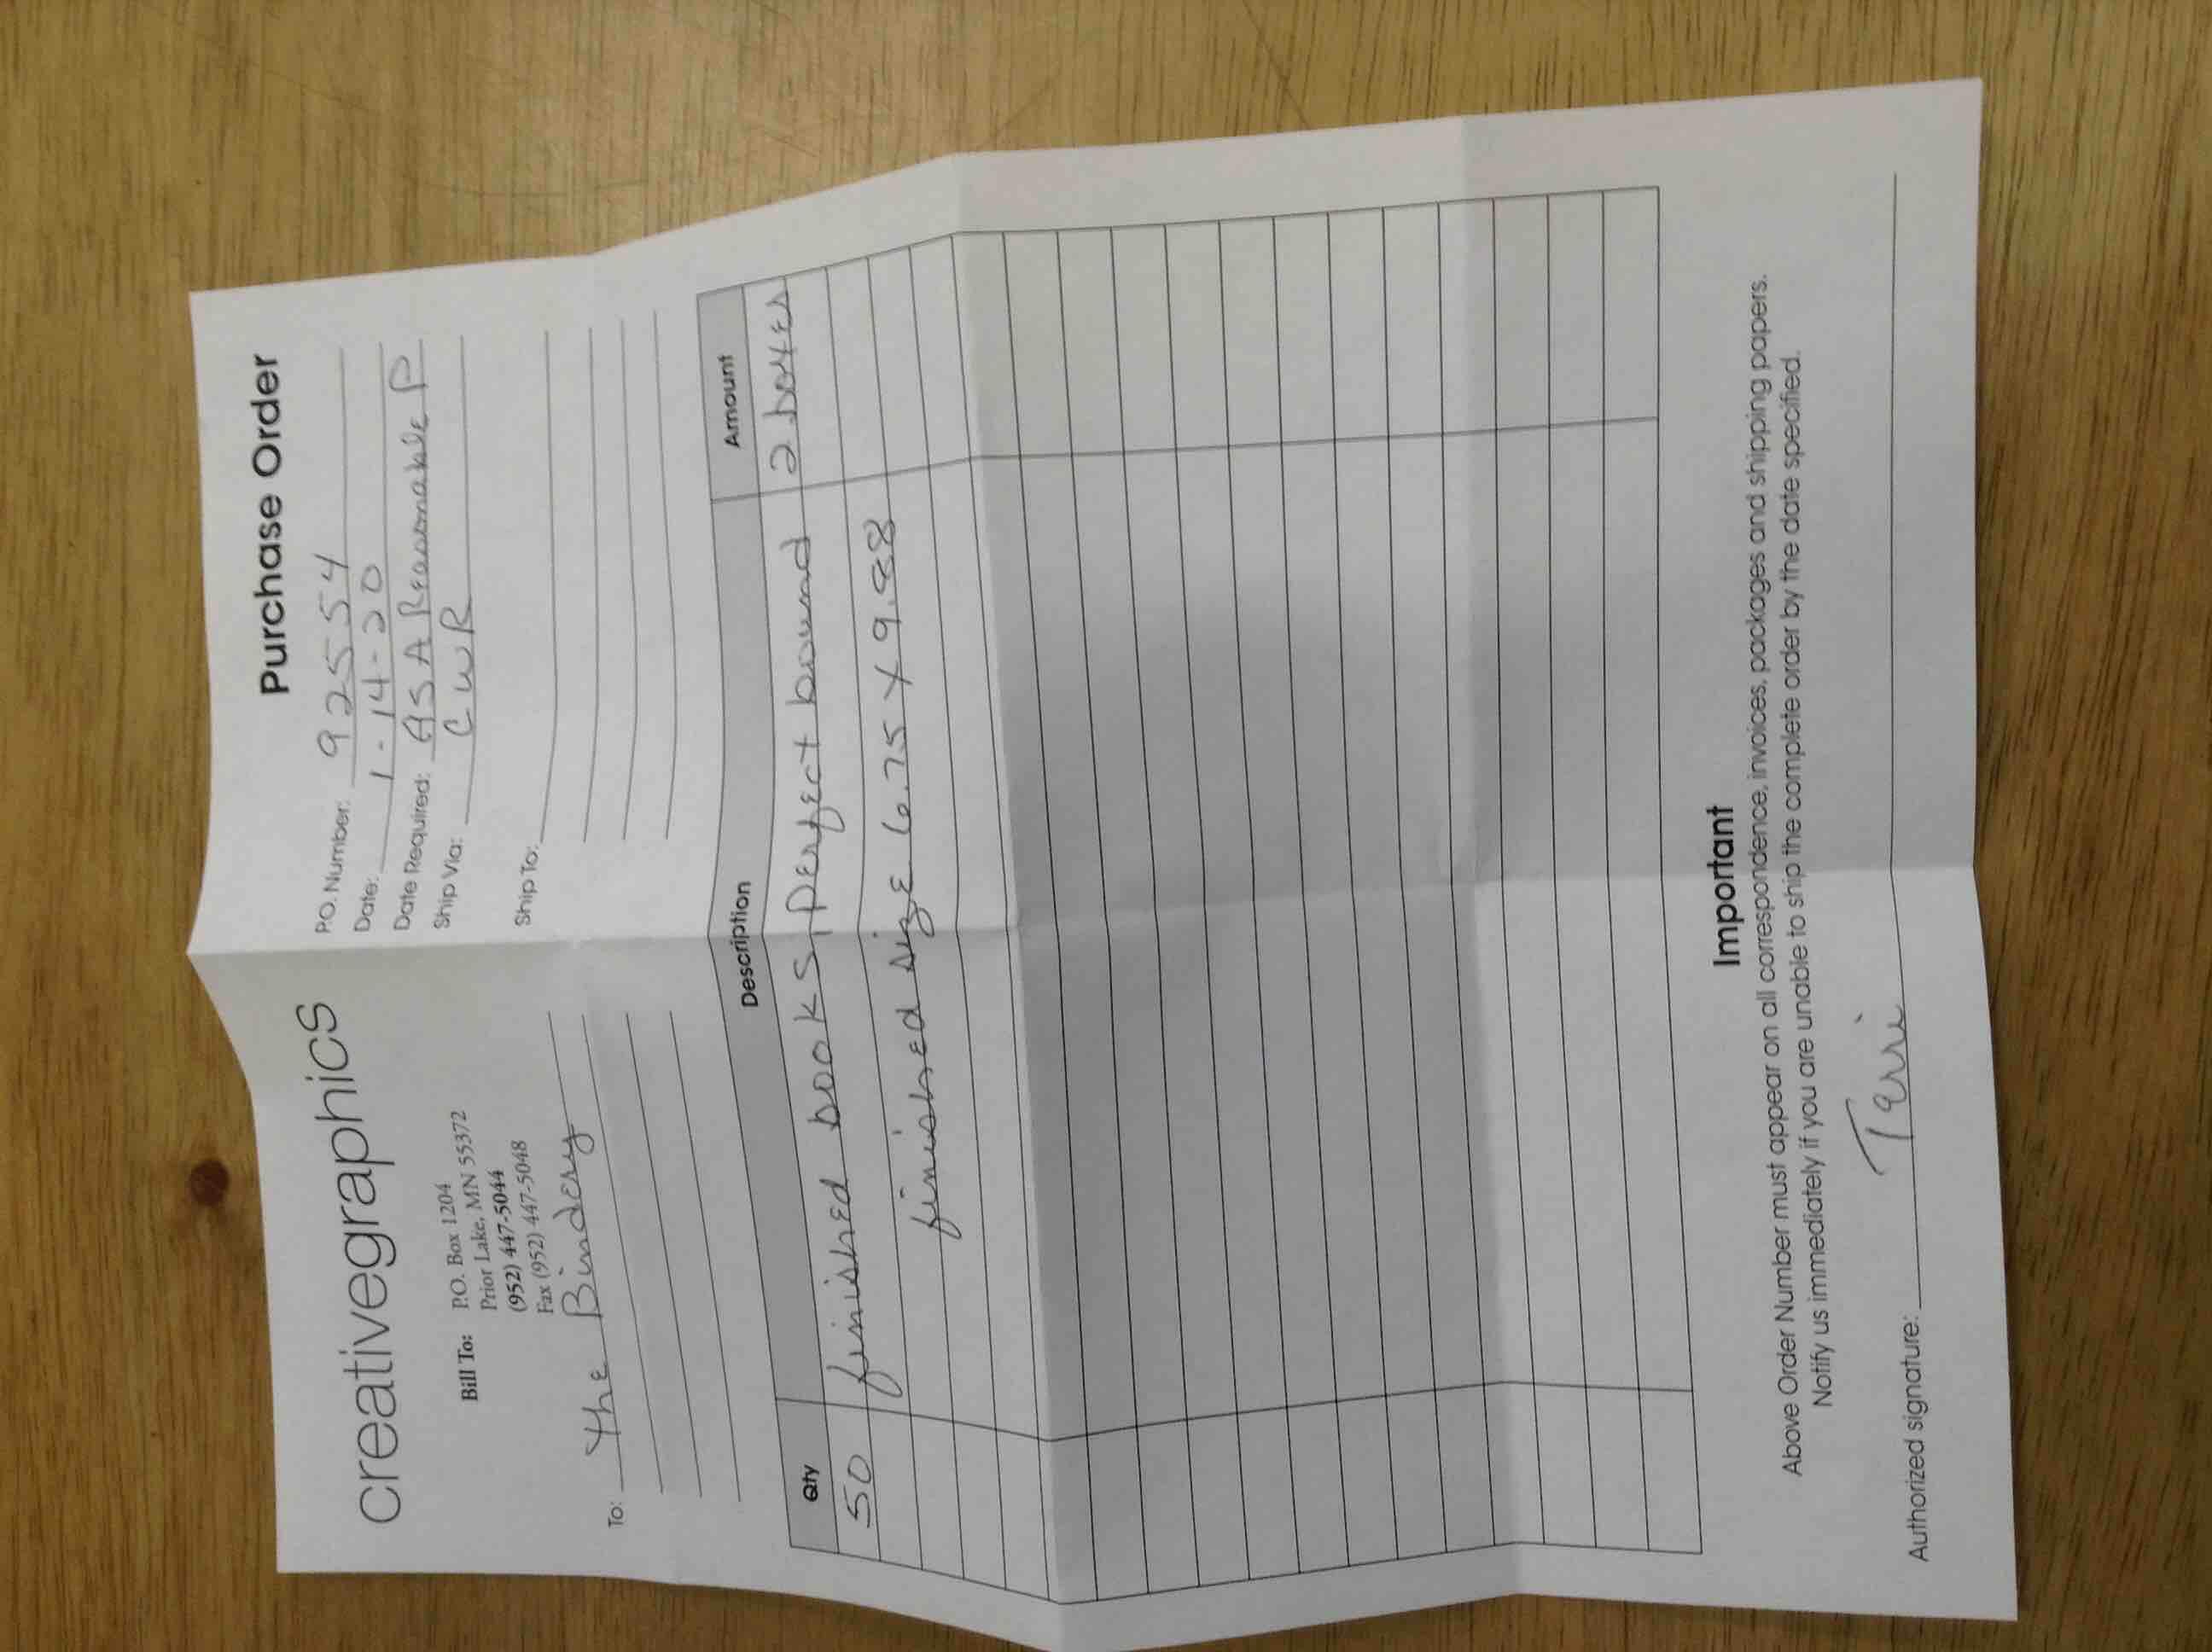 creativegraphics
Purchase Order
Bill To: P.O. Box 1204
Prior Lake, MN 55372
(952) 447-5044
Fax (952) 447-5048
P.O. Number: 92554
Date: 1-14-20
Date Required: ASA Reasonable P
Ship Via: CWR
To: The Bindery
Ship To:
Qty Description Amount
50 finished books, perfect bound 2 boxes
finished size 6.75 X 9.88
Important
Above Order Number must appear on all correspondence, invoices, packages and shipping papers.
Notify us immediately if you are unable to ship the complete order by the date specified.
Authorized signature: Terri